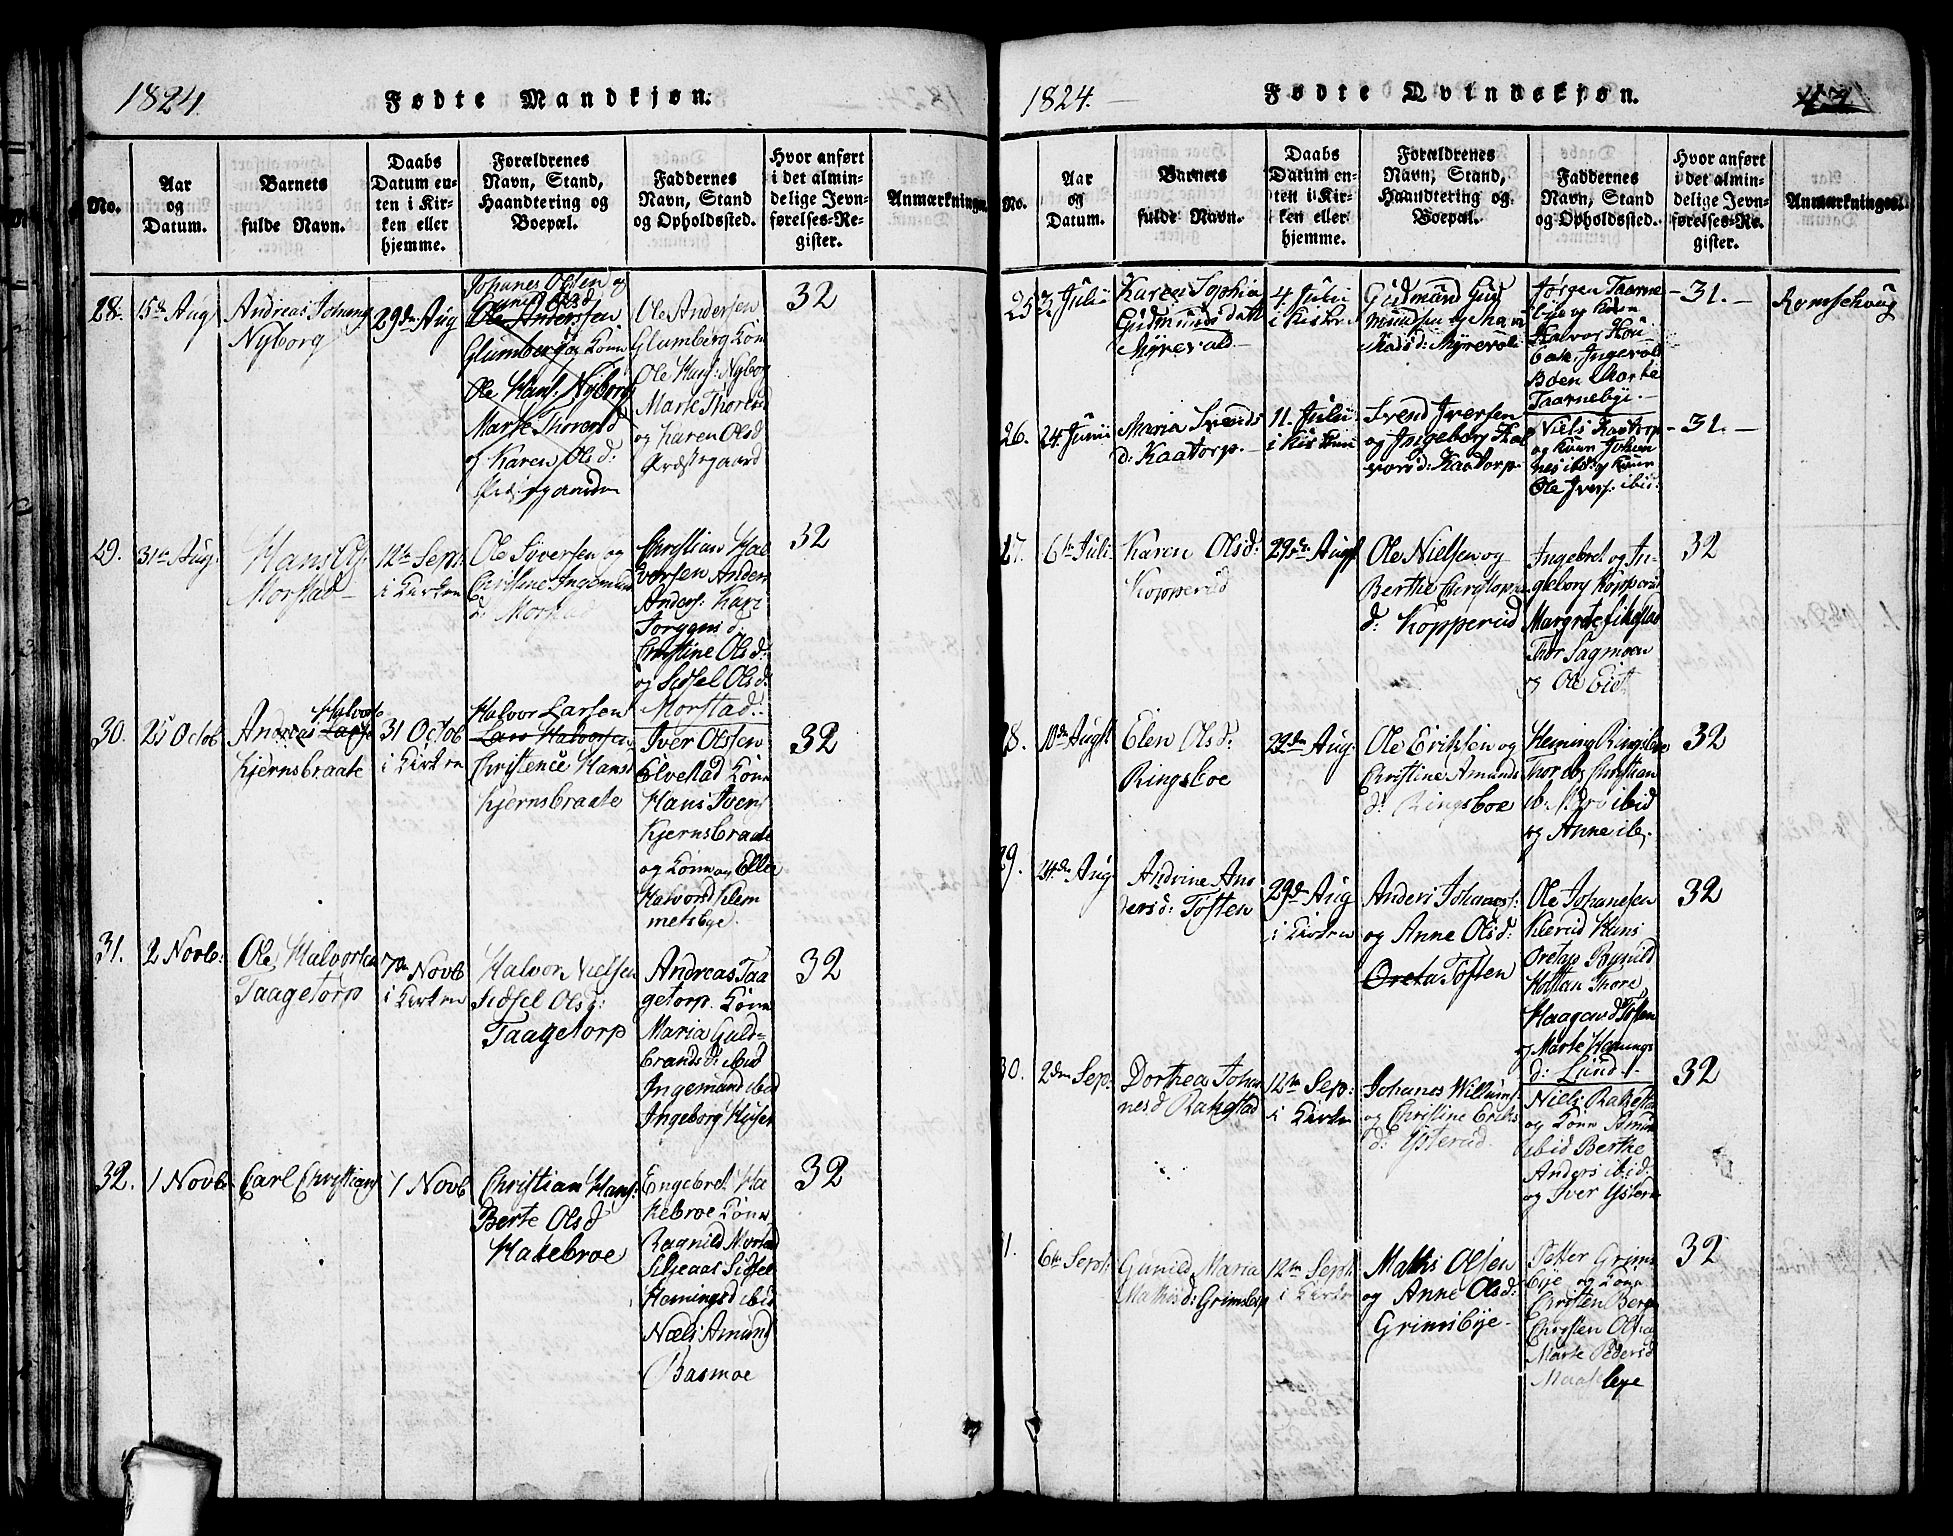 1824.
Fødte Mandkjøn.
No.
Aar
og
Datum.
Barnets
fulde Navn.
Daabs
Datum en-
ten i Kir-
ken eller
hjemme.
Forældrenes
Navn, Stand,
Haandtering og
Boepæl.
Faddernes
Navn, Stand
og Opholdssted.
Hvor anført
i det almin-
delige Jevn-
førelses-Re-
gister.
Anmærkninger.
28.
15de Aug
Andreas Johans
Nyborg
29de Aug
Johanes Olsen og
Ole Andersen
Glumberg og Kone
Ole Hans: Nyborg
Marte Thorersd
og Karen Olsd:
Ole Andersen
Glumberg Kone
Ole Hans: Nyborg
Marte Thorersd
og Karen Olsd
32
29.
31te Aug.
Hans
Morstad
12te Sept.
i Kirken
Ole Syversen og
Christine Ingemund
d: Morstad
Christian Hal
vorsen Anders
Anders: Kari
Jørgens d.
Christine Olsd:
og Sidsel Olsd:
Morstad.
32
30.
25 Octob
Andreas Halvors
Kjernsbraate
31 Octob
i Kirken
Halvor Larsen
Lars Halvorsen
Christence Hansd
Kjernsbraate
Iver Olsen
Elvestad Kone
Hans Ivers
Kjernsbraate
og Kone og Elle
Halvorsd Klem
metsbye.
32
31.
2 Novb:
Ole Halvorsen
Taagetorp
7de Novb
i Kirken
Halvor Nielsen
Sidsel Olsd:
Taagetorp
Andreas Taa
getorp. Kone
Maria Guld-
brandsd: ibid
Ingemund ibid
Ingeborg
32
32.
1 Novb
Carl Christians
1 Novb
Christian Hans:
Berte Olsd
Hakebroe
Engebret Ha
kebroe Kone
Ragnild
Sidsel
Hemingsd ibid
Niels Amund
Basmoe
32
1824.
Fødte Qvindekjøn.
47
No.
Aar
og
Datum.
Barnets
fulde Navn.
Daabs
Datum en-
ten i Kir-
ken eller
hjemme.
Forældrenes
Navn, Stand,
Haandtering og
Boepæl.
Faddernes
Navn, Stand
og Opholdssted.
Hvor anført
i det almin-
delige Jevn-
førelses-Re-
gister.
Anmærkninger.
25
3. Julii
Karen Sophia
Gudmundsdatt
Myrevold
4. Julii
i Kirken
Gudmund Gud
mundsen og Mari
Myrevol
Jørgen Taarne
bye og Konen
Halvor Kou
Ingevold
Boen Marte
Taarnebye.
-31.-
Romsehoug
26.
24 Junii
Maria Svends
d: Kaatorp.
11. Julii
i Kirken
Svend Iversen
og Ingeborg Hal
vorsd: Kaatorp
Niels Kaatorp
og Kone Johan
nes ibid: og Kone
Ole Ivers: ibid:
-31.-
27.
6te Juli
Karen Olsd:
Kopperud
29de Augt
Ole Nielsen og
Berthe Christophe
d: Kopperud
Ingebret og In-
geborg Kopperud
Margrete
Thor Sagmoen
og Ole Eid
32
28.
10de Augt
Elen Olsd:
Ringsboe
29de Aug.
Ole Eriksen og
Christine Amunds
d: Ringsboe
Heming Ringsboe
Thor og Christian
ib: ibid
og Anne ib.
32
29.
24de Aug
Andrine An
dersd: Toften
29de Aug
i Kirken
Anders Johaness:
og Anne Olsd:
Toften
Ole Johanesen
Kierud Hans
Ragnild
Thore
Haagard Toften
og Marte Hemings
d: Lund
32
30.
2den Sep:
Dorthea Johan
nesd Rakstad
12te Sep:
i Kirken
Johanes Willums
og Christine Eriks
d: Ysterud
Niels Rakstad
og Kone Amund
ibid Berthe
Anders ibid:
og Iver Ysterud
32
31.
6te Septb:
Gunild Maria
Mathisd: Grimsbye
12te Septb:
i Kirken
Mathis Olsen
og Anne Olsd:
Grimsbye
Petter Grims
bye og Kone
Christen Berg
Christen Olsen
Marte Pedersd
32